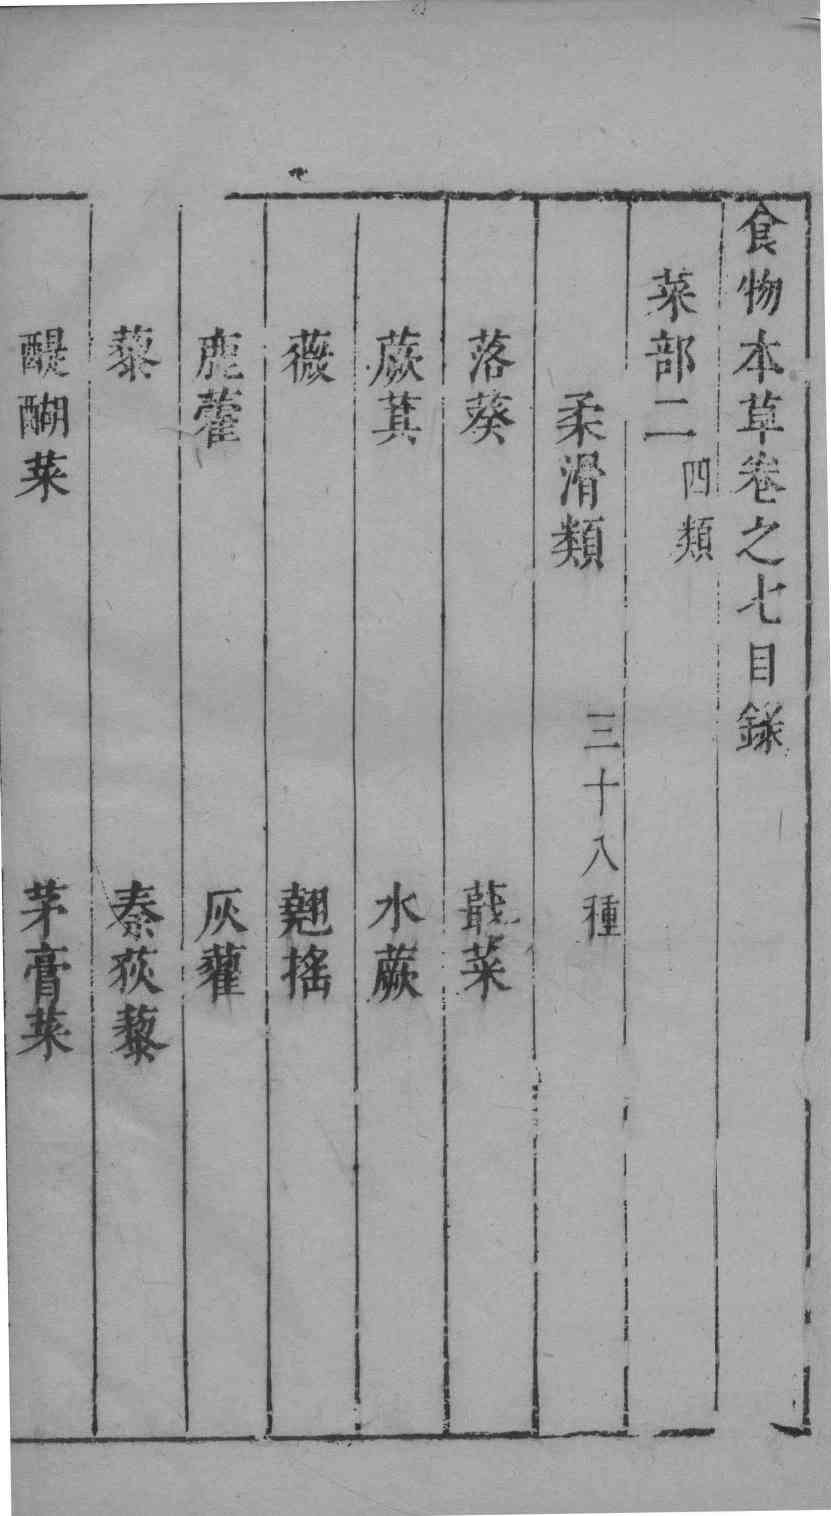 食物本草卷之七目錄
菜部二 四類
柔滑類 三十八種
落葵 蕺菜
蕨萁 水蕨
薇 翹搖
鹿藿 灰藋
藜 秦荻藜
醍醐菜 茅膏菜